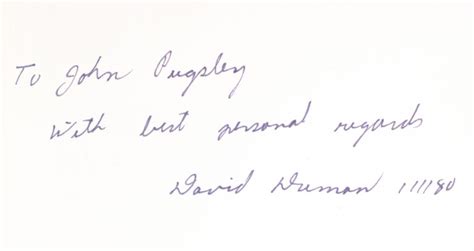 To John Pugsley
With best personal regards
David Dreman 11/1/80